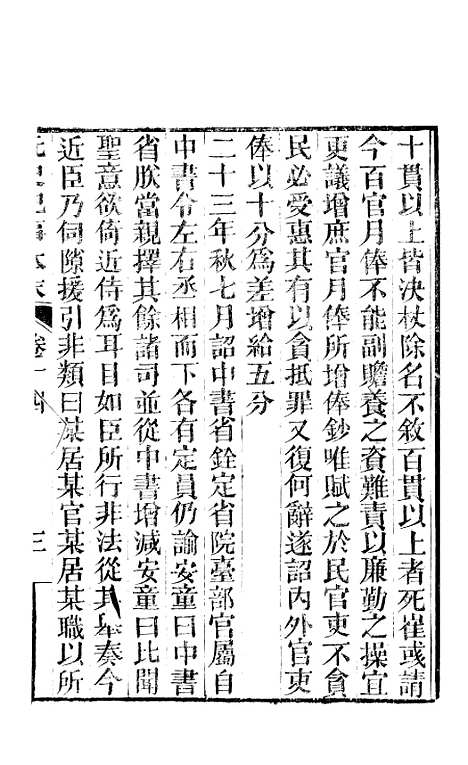 十貫以上皆決杖除名不敘百貫以上者死崔彧請
今百官月俸不能副贍養之資難責以廉勤之操宜
更議增庶官月俸所增俸鈔唯賦之於民官吏不貪
民必愛惠其有以貪抵罪又復何辭遂詔內外官吏
俸以十分為差增給五分
二十三年秋七月詔中書省銓定省院臺部官屬自
中書令左右丞相而下各有定員仍諭安童曰中書
省朕當親擇其餘諸司並從中書增減安童曰比聞
聖意欲倚近侍為耳目如臣所行非法從其舉奏今
近臣乃伺隙援引非類曰某居某官某居某職以所
元史紀事本末
卷十四
三